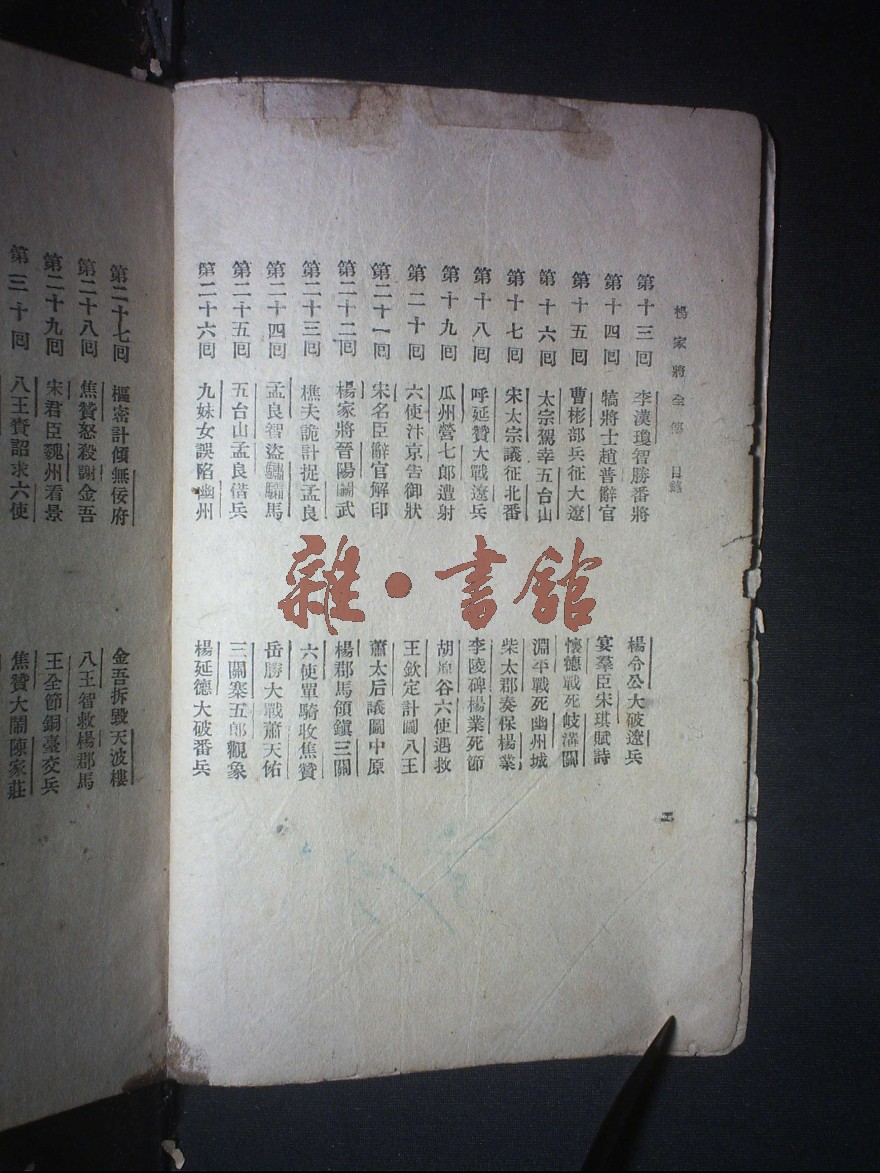 楊家將全傳 目錄
第十三回 李漢瓊智勝番將 楊令公大破遼兵
第十四回 犒將士趙普辭官 宴羣臣宋琪賦詩
第十五回 曹彬部兵征大遼 懷德戰死岐溝關
第十六回 太宗駕幸五台山 淵平戰死幽州城
第十七回 宋太宗議征北番 柴太郡奏保楊業
第十八回 呼延贊大戰遼兵 李陵碑楊業死節
第十九回 瓜州營七郎遭射 胡原谷六使遇救
第二十回 六使汴京告御狀 王欽定計圖八王
第二十一回 宋名臣辭官解印 蕭太后議圖中原
第二十二回 楊家將晉陽鬭武 楊郡馬領鎮三關
第二十三回 樵夫詭計捉孟良 六使單騎收焦贊
第二十四回 孟良智盜驌驦馬 岳勝大戰蕭天佑
第二十五回 五台山孟良借兵 三關寨五郎觀象
第二十六回 九妹女誤陷幽州 楊延德大破番兵
二
第二十七回 樞密計傾無佞府 金吾拆毀天波樓
第二十八回 焦贊怒殺謝金吾 八王智救楊郡馬
第二十九回 宋君臣魏州看景 王全節銅臺交兵
第三十回 八王賫詔求六使 焦贊大鬧陳家莊
雜·書館